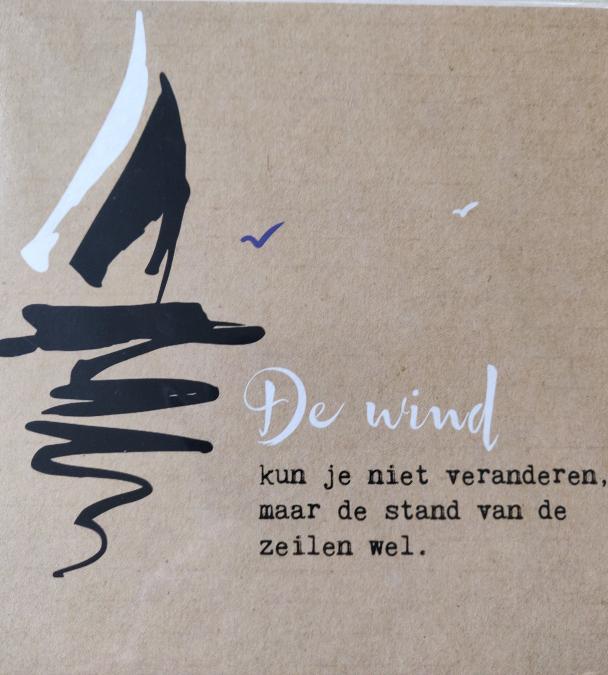 De wind
kun je niet veranderen,
maar de stand van de
zeilen wel.